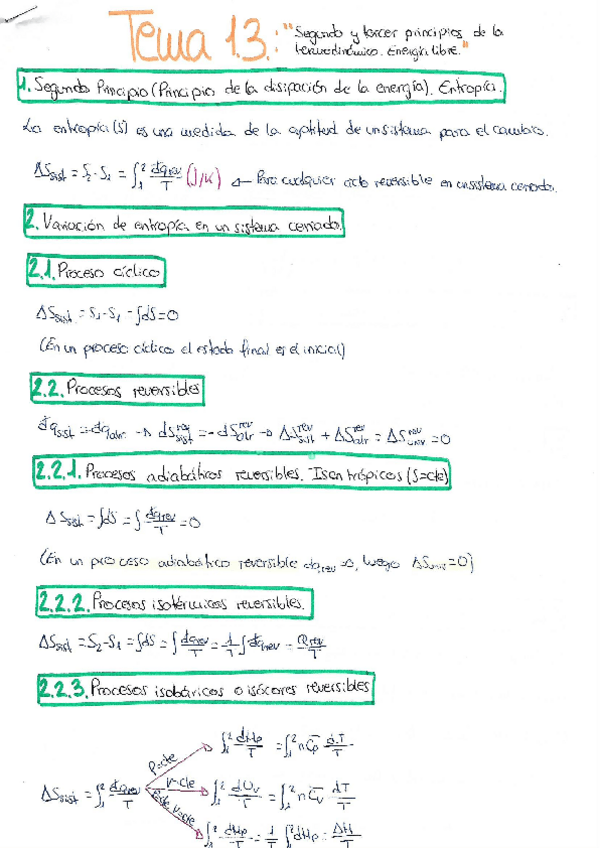 Tema 13.: "Segundo y tercer principios de la
termodinámica. Energía libre."
1. Segundo Principio (Principio de la disipación de la energía). Entropía.
La entropía (S) es una medida de la aptitud de un sistema para el cambio.
ΔSsist = S2 - S1 = ∫₁² đqrev/T (J/K) ← Para cualquier ciclo reversible en un sistema cerrado.
2. Variación de entropía en un sistema cerrado.
2.1. Proceso cíclico
ΔSsist = S1 - S1 = ∫dS = 0
(En un proceso cíclico el estado final es el inicial)
2.2. Procesos reversibles
đqsist = -đqalr → dSsist^rev = -dSalr^rev → ΔSsist^rev + ΔSalr^rev = ΔSuniv^rev = 0
2.2.1. Procesos adiabáticos reversibles. Isentrópicos (S=cte)
ΔSsist = ∫dS = ∫ đqrev/T = 0
(En un proceso adiabático reversible dqrev = 0, luego ΔSuniv = 0)
2.2.2. Procesos isotérmicos reversibles.
ΔSsist = S2 - S1 = ∫dS = ∫ đqrev/T = 1/T ∫ đqrev = Qrev/T
2.2.3. Procesos isobáricos o isócoros reversibles
P=cte ∫₁² dHp/T = ∫₁² nC̅p dT/T
ΔSsist = ∫₁² đqrev/T V=cte ∫₁² dUv/T = ∫₁² nC̅v dT/T
V=cte ∫₁² dHp/T = 1/T ∫₁² dHp = ΔH/T